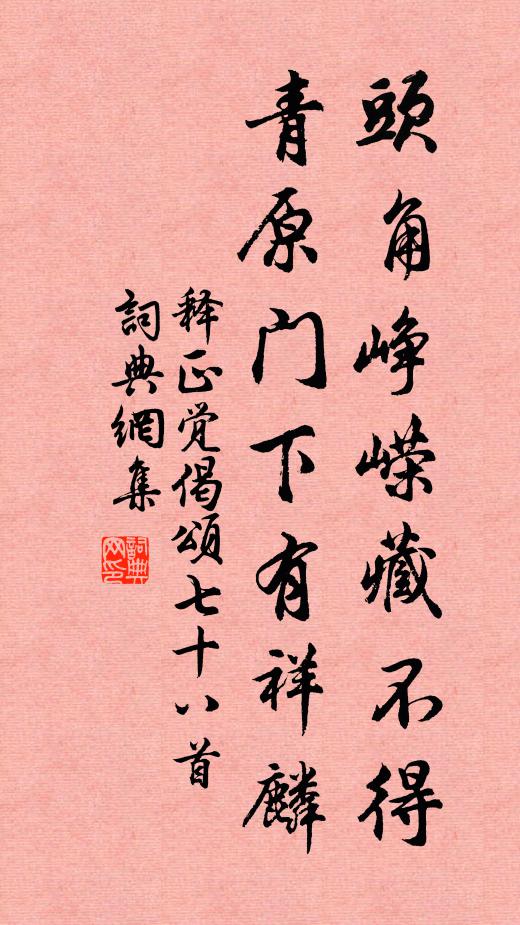 頭角峥嶸藏不得
青原门下有祥麟
释正覚偈頌七十八首
詞典網集
詞典
网印